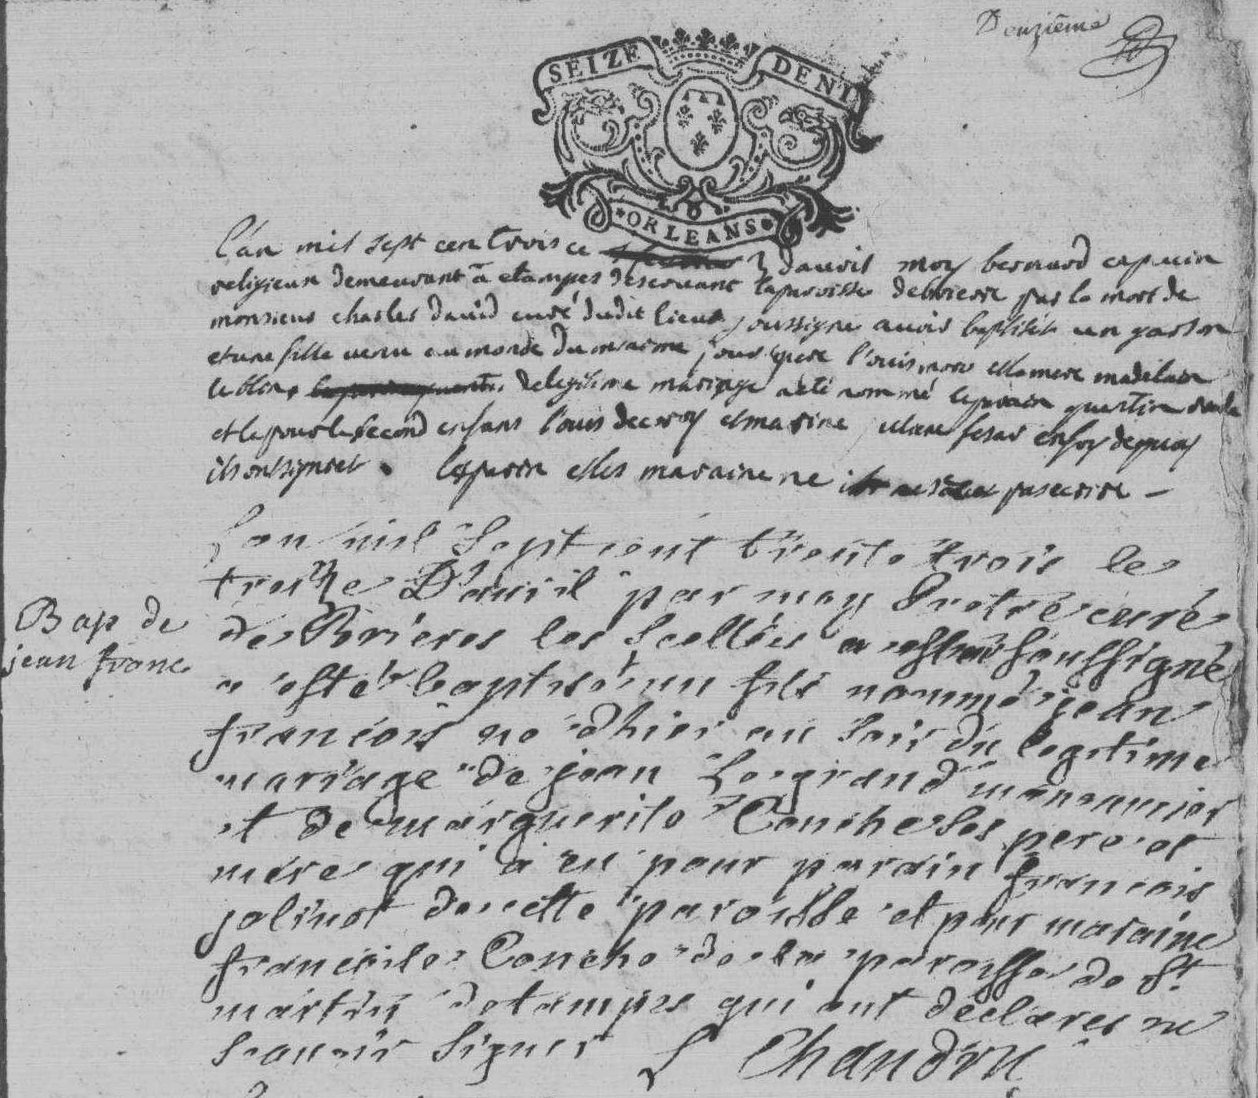 Deuzième
SEIZE DENI
ORLEANS
l'an mil sept cen trois ce 3 davril moy bernard capucin
religieux demeurant a etampes deservant laparoisse de brierre par la mort de
monsieur charles david curé dudit lieux soussigne avoir baptisét un garson
et une fille venu au monde du mesme jour le pere l'ouis more et la mere madelaine
le blon de legitime mariage a eté nommé le parain
et le pour le second enfans l'ouis decroy et marine en foy de quoy
ils ont signset . le parin et les maraine ne pas ecrire –
L'an mil sept cent trente trois le
treize D'avril par moy Pretre curé
de Brieres les scellés soussigné
a esté baptisé un fils nommé jean
françois né d'hier au soir du legitime
mariage de jean Legrand manouvrier
et de marguerite Couche ses pere et
mere qui a eu pour parain françois
jolivot de cette paroisse et pour maraine
françoise Couche de la paroisse de St
martin detampes qui ont déclarés ne
scavoir signer L Chandru
Bap de
jean franc